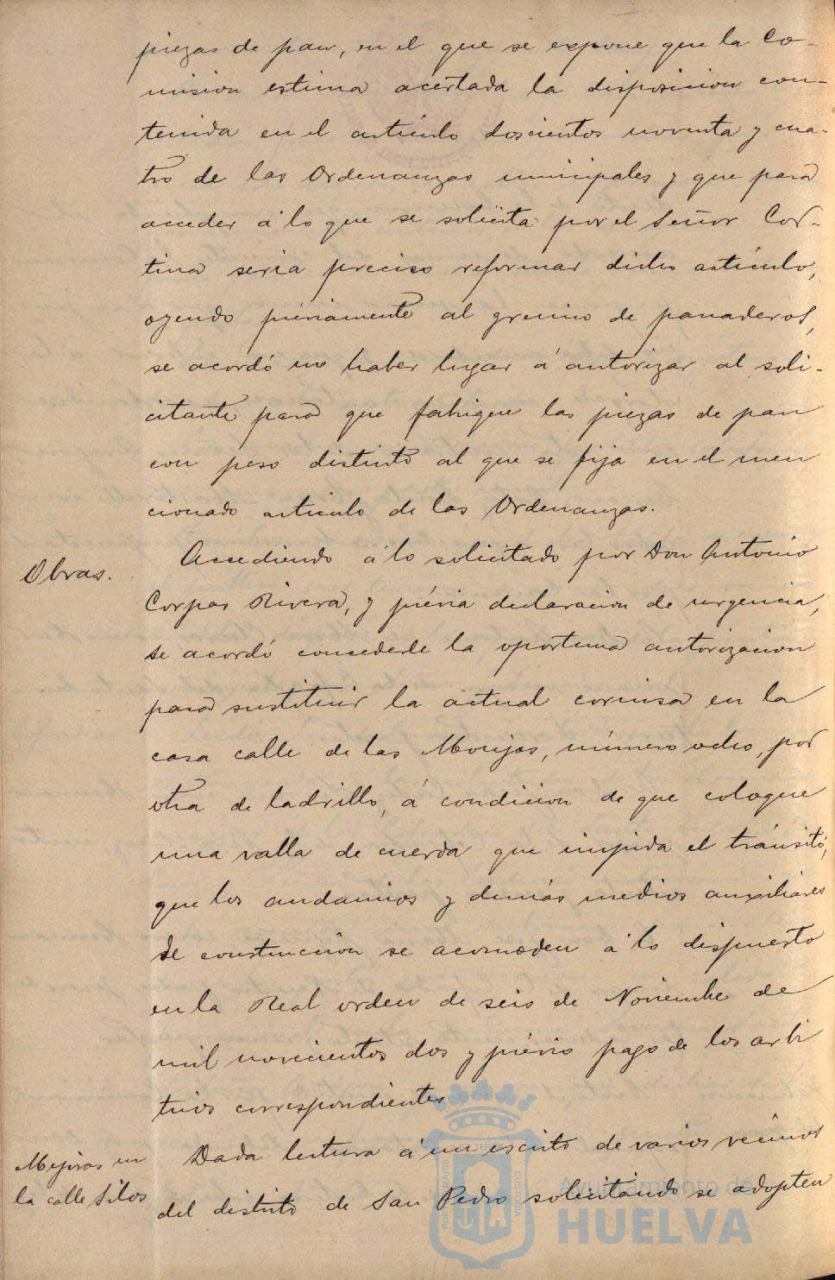 piezas de pan, en el que se expone que la Co-
mision estima acertada la disposicion con-
tenida en el artículo doscientos noventa y cua-
tro de las Ordenanzas municipales y que para
acceder á lo que se solicita por el Señor Cor-
tina seria preciso reformar dicho artículo,
oyendo préviamente al gremio de panaderos,
se acordó no haber lugar á autorizar al soli-
citante para que fabrique las piezas de pan
con peso distinto al que se fija en el men
cionado artículo de las Ordenanzas.
Obras.
Accediendo á lo solicitado por Don Antonio
Corpas Rivera, y prévia declaracion de urgencia,
se acordó concederle la oportuna autorizacion
para sustituir la actual cornisa en la
casa calle de las Monjas, número ocho, por
otra de ladrillo, á condicion de que coloque
una valla de cuerda que impida el tránsito,
que los andamios y demás medios auxiliares
de construcción se acomoden á lo dispuesto
en la Real orden de seis de Noviembre de
mil novecientos dos y prévio pago de los arbi
trios correspondientes.
Mejoras en
la calle Silos
Dada lectura á un escrito de varios vecinos
del distrito de San Pedro solicitando se adopten
Ayuntamiento de
HUELVA